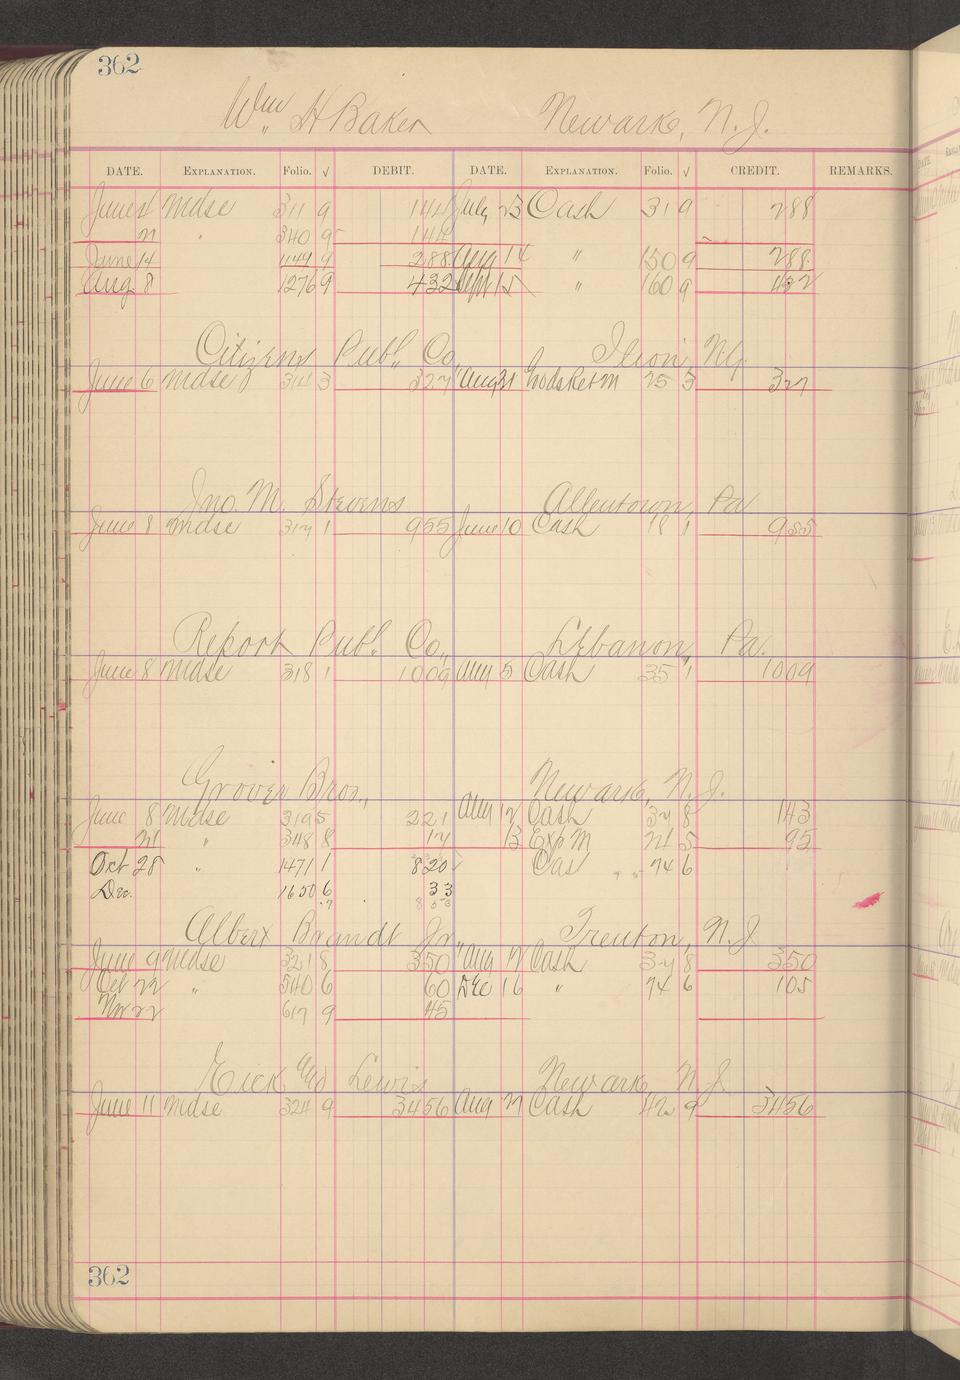 362
Wm H Baker Newark, N. J.
DATE. EXPLANATION. Folio. √ DEBIT. DATE. EXPLANATION. Folio. √ CREDIT. REMARKS.
June 4 Mdse 311 9 144 July 23 Cash 31 9 288
21 " 340 9 144
June 14 1149 9 288 Aug 14 " 150 9 288
Aug 8 1276 9 432 Sept 15 " 160 9 432
Citizens Publ. Co., Ilion, Ny.
June 6 Mdse 314 3 327 Aug 31 Gods Retm 25 3 327
Jno. M. Stevens Allentown, Pa
June 8 Mdse 317 1 955 June 10 Cash 18 1 955
Report Publ. Co., Lebanon, Pa.
June 8 Mdse 318 1 1009 Aug 5 Cash 35 1 1009
Grover Bros., Newark, N. J.
June 8 Mdse 319 5 221 Aug 12 Cash 37 8 143
21 " 348 8 17 13 Exp M 24 5 95
Oct 28 " 1471 1 820 Cas 74 6
Dec. 1650 6 33
Albert Brandt Jr., Trenton, N. J.
June 9 Mdse 321 8 350 Aug 12 Cash 37 8 350
Oct 22 " 540 6 60 Dec 16 " 74 6 105
Nov 22 617 9 45
Eick and Lewis Newark, N. J.
June 11 Mdse 324 9 3456 Aug 27 Cash 42 9 3456
362